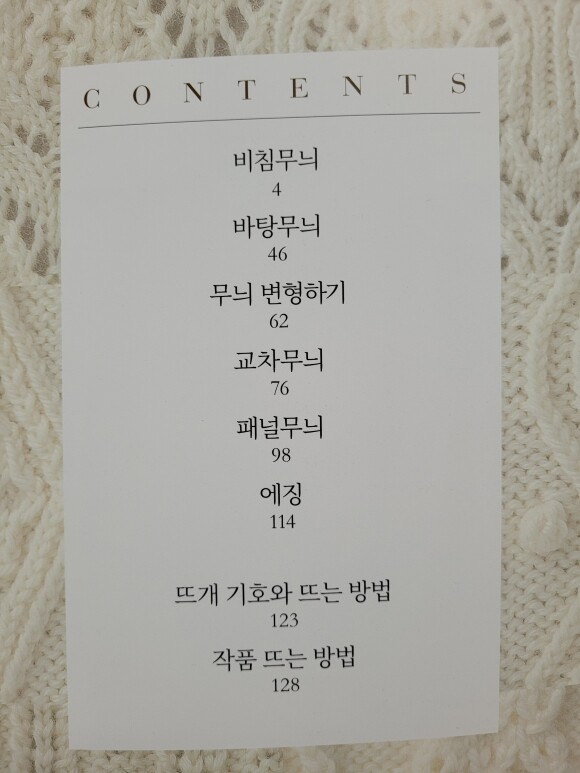 CONTENTS
비침무늬
4
바탕무늬
46
무늬 변형하기
62
교차무늬
76
패널무늬
98
에징
114
뜨개 기호와 뜨는 방법
123
작품 뜨는 방법
128